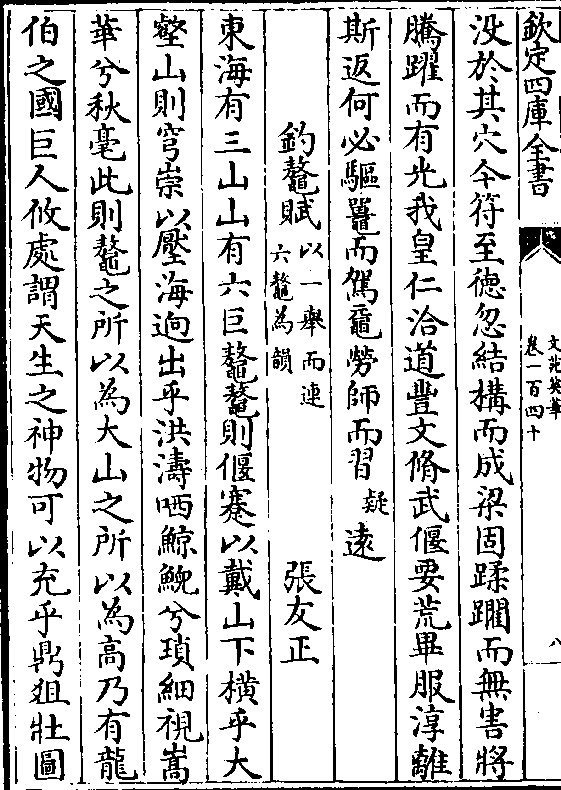 欽定四庫全書
文苑英華
卷一百四十
八
没於其穴今符至德忽結構而成梁固蹂躙而無害將
騰躍而有光我皇仁洽道豐文脩武偃要荒畢服淳離
斯返何必驅鼉而駕黿勞師而習疑遠
釣鼇賦以一舉而連六鼇為韻
張友正
東海有三山山有六巨鼇鼇則偃蹇以戴山下横乎大
壑山則穹崇以壓海逈出乎洪濤哂鯨鯢兮瑣細視嵩
華兮秋毫此則鼇之所以為大山之所以為高乃有龍
伯之國巨人攸處謂天生之神物可以充乎鼎俎壯圖